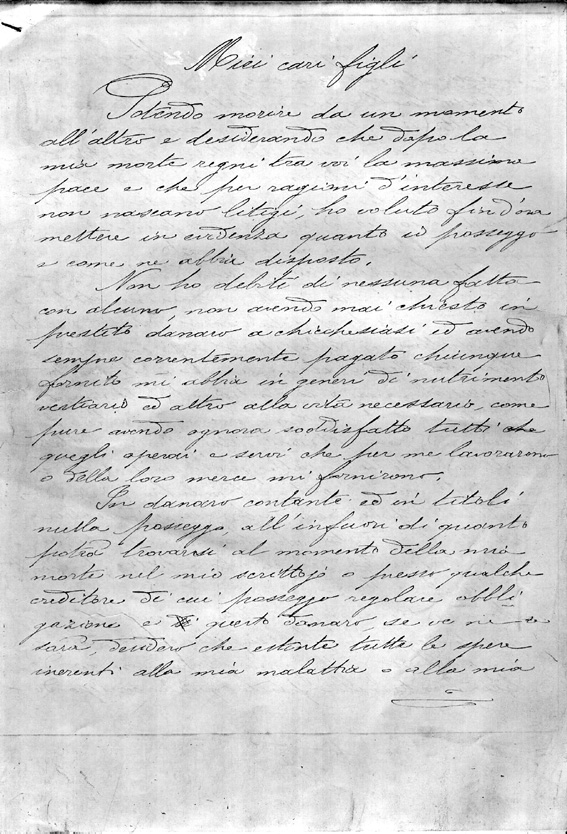 Miei cari figli
Potendo morire da un momento
all'altro e desiderando che dopo la
mia morte regni tra voi la massima
pace e che per ragioni d'interesse
non nascano litigi, ho voluto fin d'ora
mettere in evidenza quanto io posseggo
e come ne abbia disposto.
Non ho debiti di nessuna fatta
con alcuno, non avendo mai chiesto in
prestito danaro a chicchesiasi ed avendo
sempre correntemente pagato chiunque
fornito mi abbia in generi di nutrimento
vestiario ed altro alla vita necessario, come
pure avendo ognora soddisfatto tutti
quegli operai e servi che per me lavorarono
o della loro merce mi fornirono.
In danaro contante ed in titoli
nulla posseggo all'infuori di quanto
potrà trovarsi al momento della mia
morte nel mio scrittojo o presso qualche
creditore di cui posseggo regolare obbli
gazione e questo danaro, se ve ne
sarà, desidero che estinte tutte le spese
inerenti alla mia malattia o alla mia